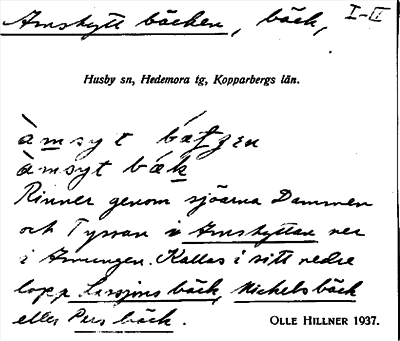 Amshytt bäcken, bäck, I-II
Husby sn, Hedemora tg, Kopparbergs län.
àmsyt
àmsyt bæk
Rinner genom sjöarna Dammen
och Tyssan i Amshyttan ner
i Amungen. Kallas i sitt nedre
lopp bäck, Nickelsbäck
eller Pers bäck.
OLLE HILLNER 1937.